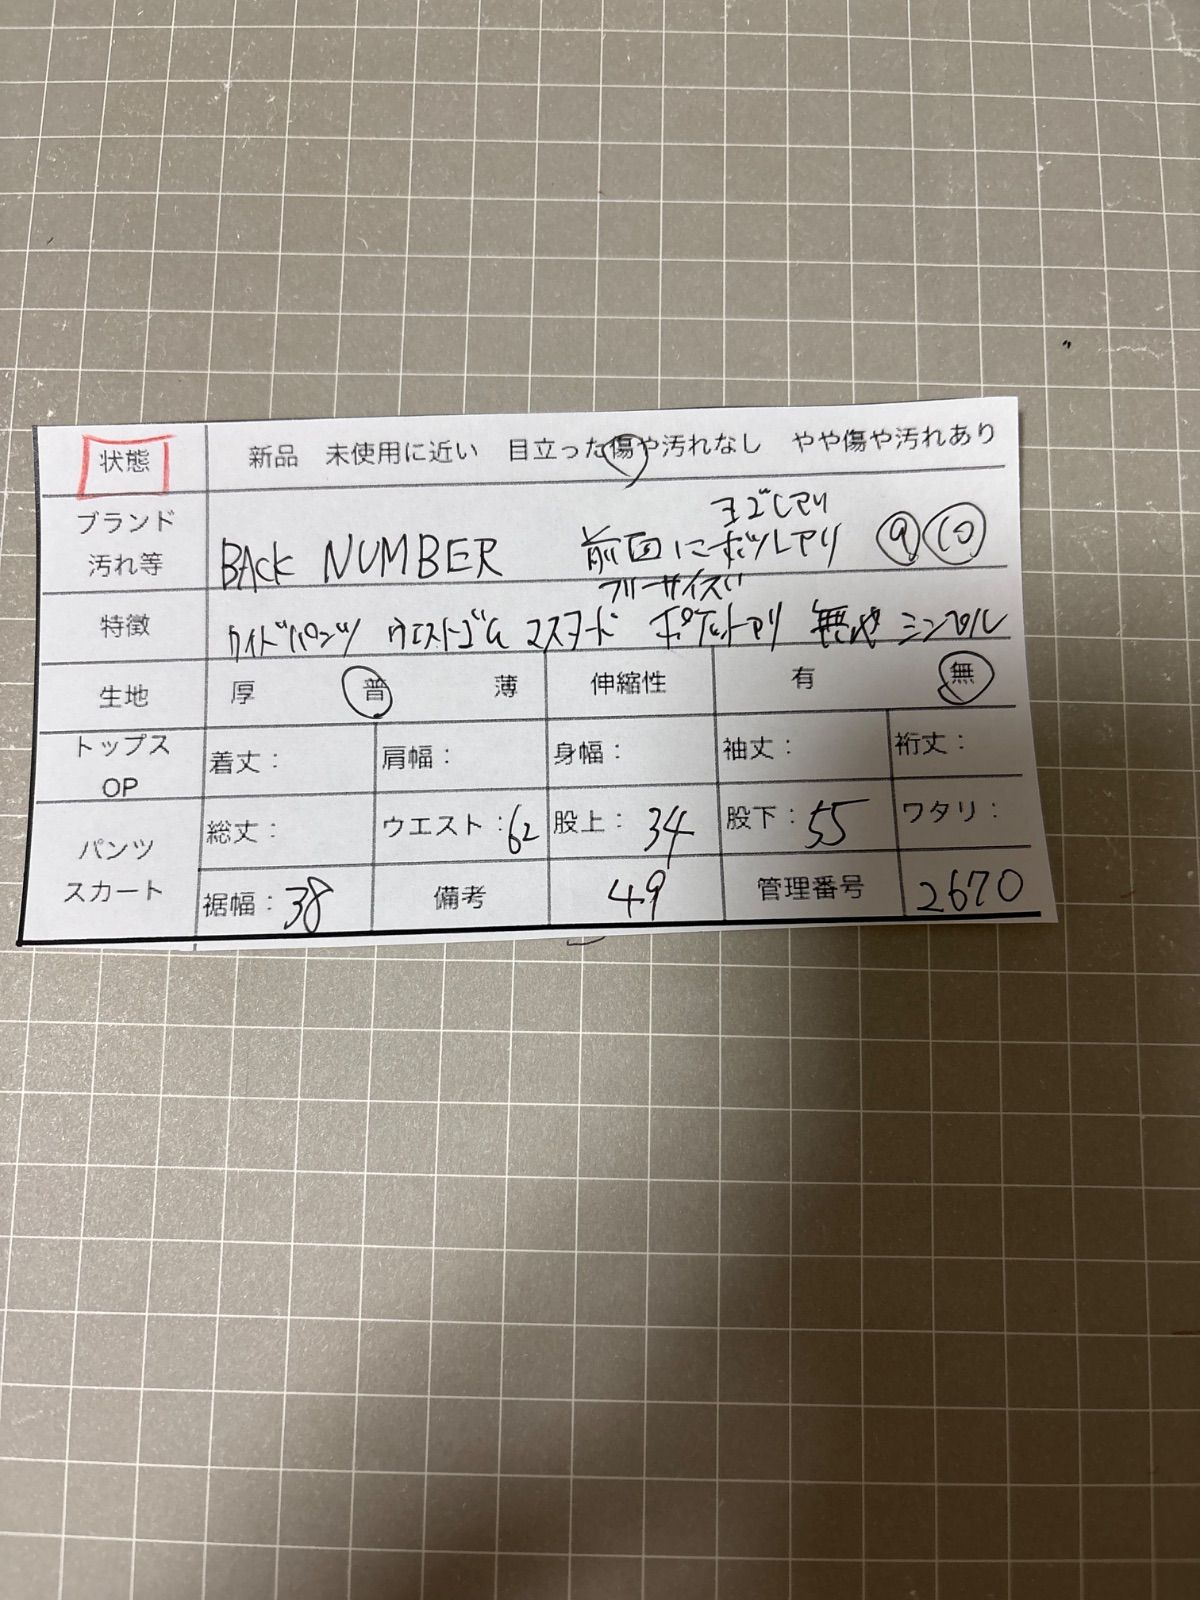 状態 新品 未使用に近い 目立った傷や汚れなし やや傷や汚れあり
ヨゴレアリ
ブランド 汚れ等 BACK NUMBER 前面にポツレアリ ⑨ ⑩
フリーサイズ
特徴 ワイドパンツ ウエストゴム マスタード ポケットアリ 無地 シンプル
生地 厚 普 薄 伸縮性 有 無
トップス OP 着丈: 肩幅: 身幅: 袖丈: 裄丈:
パンツ スカート 総丈: ウエスト:62 股上:34 股下:55 ワタリ:
裾幅:38 備考 49 管理番号 2670